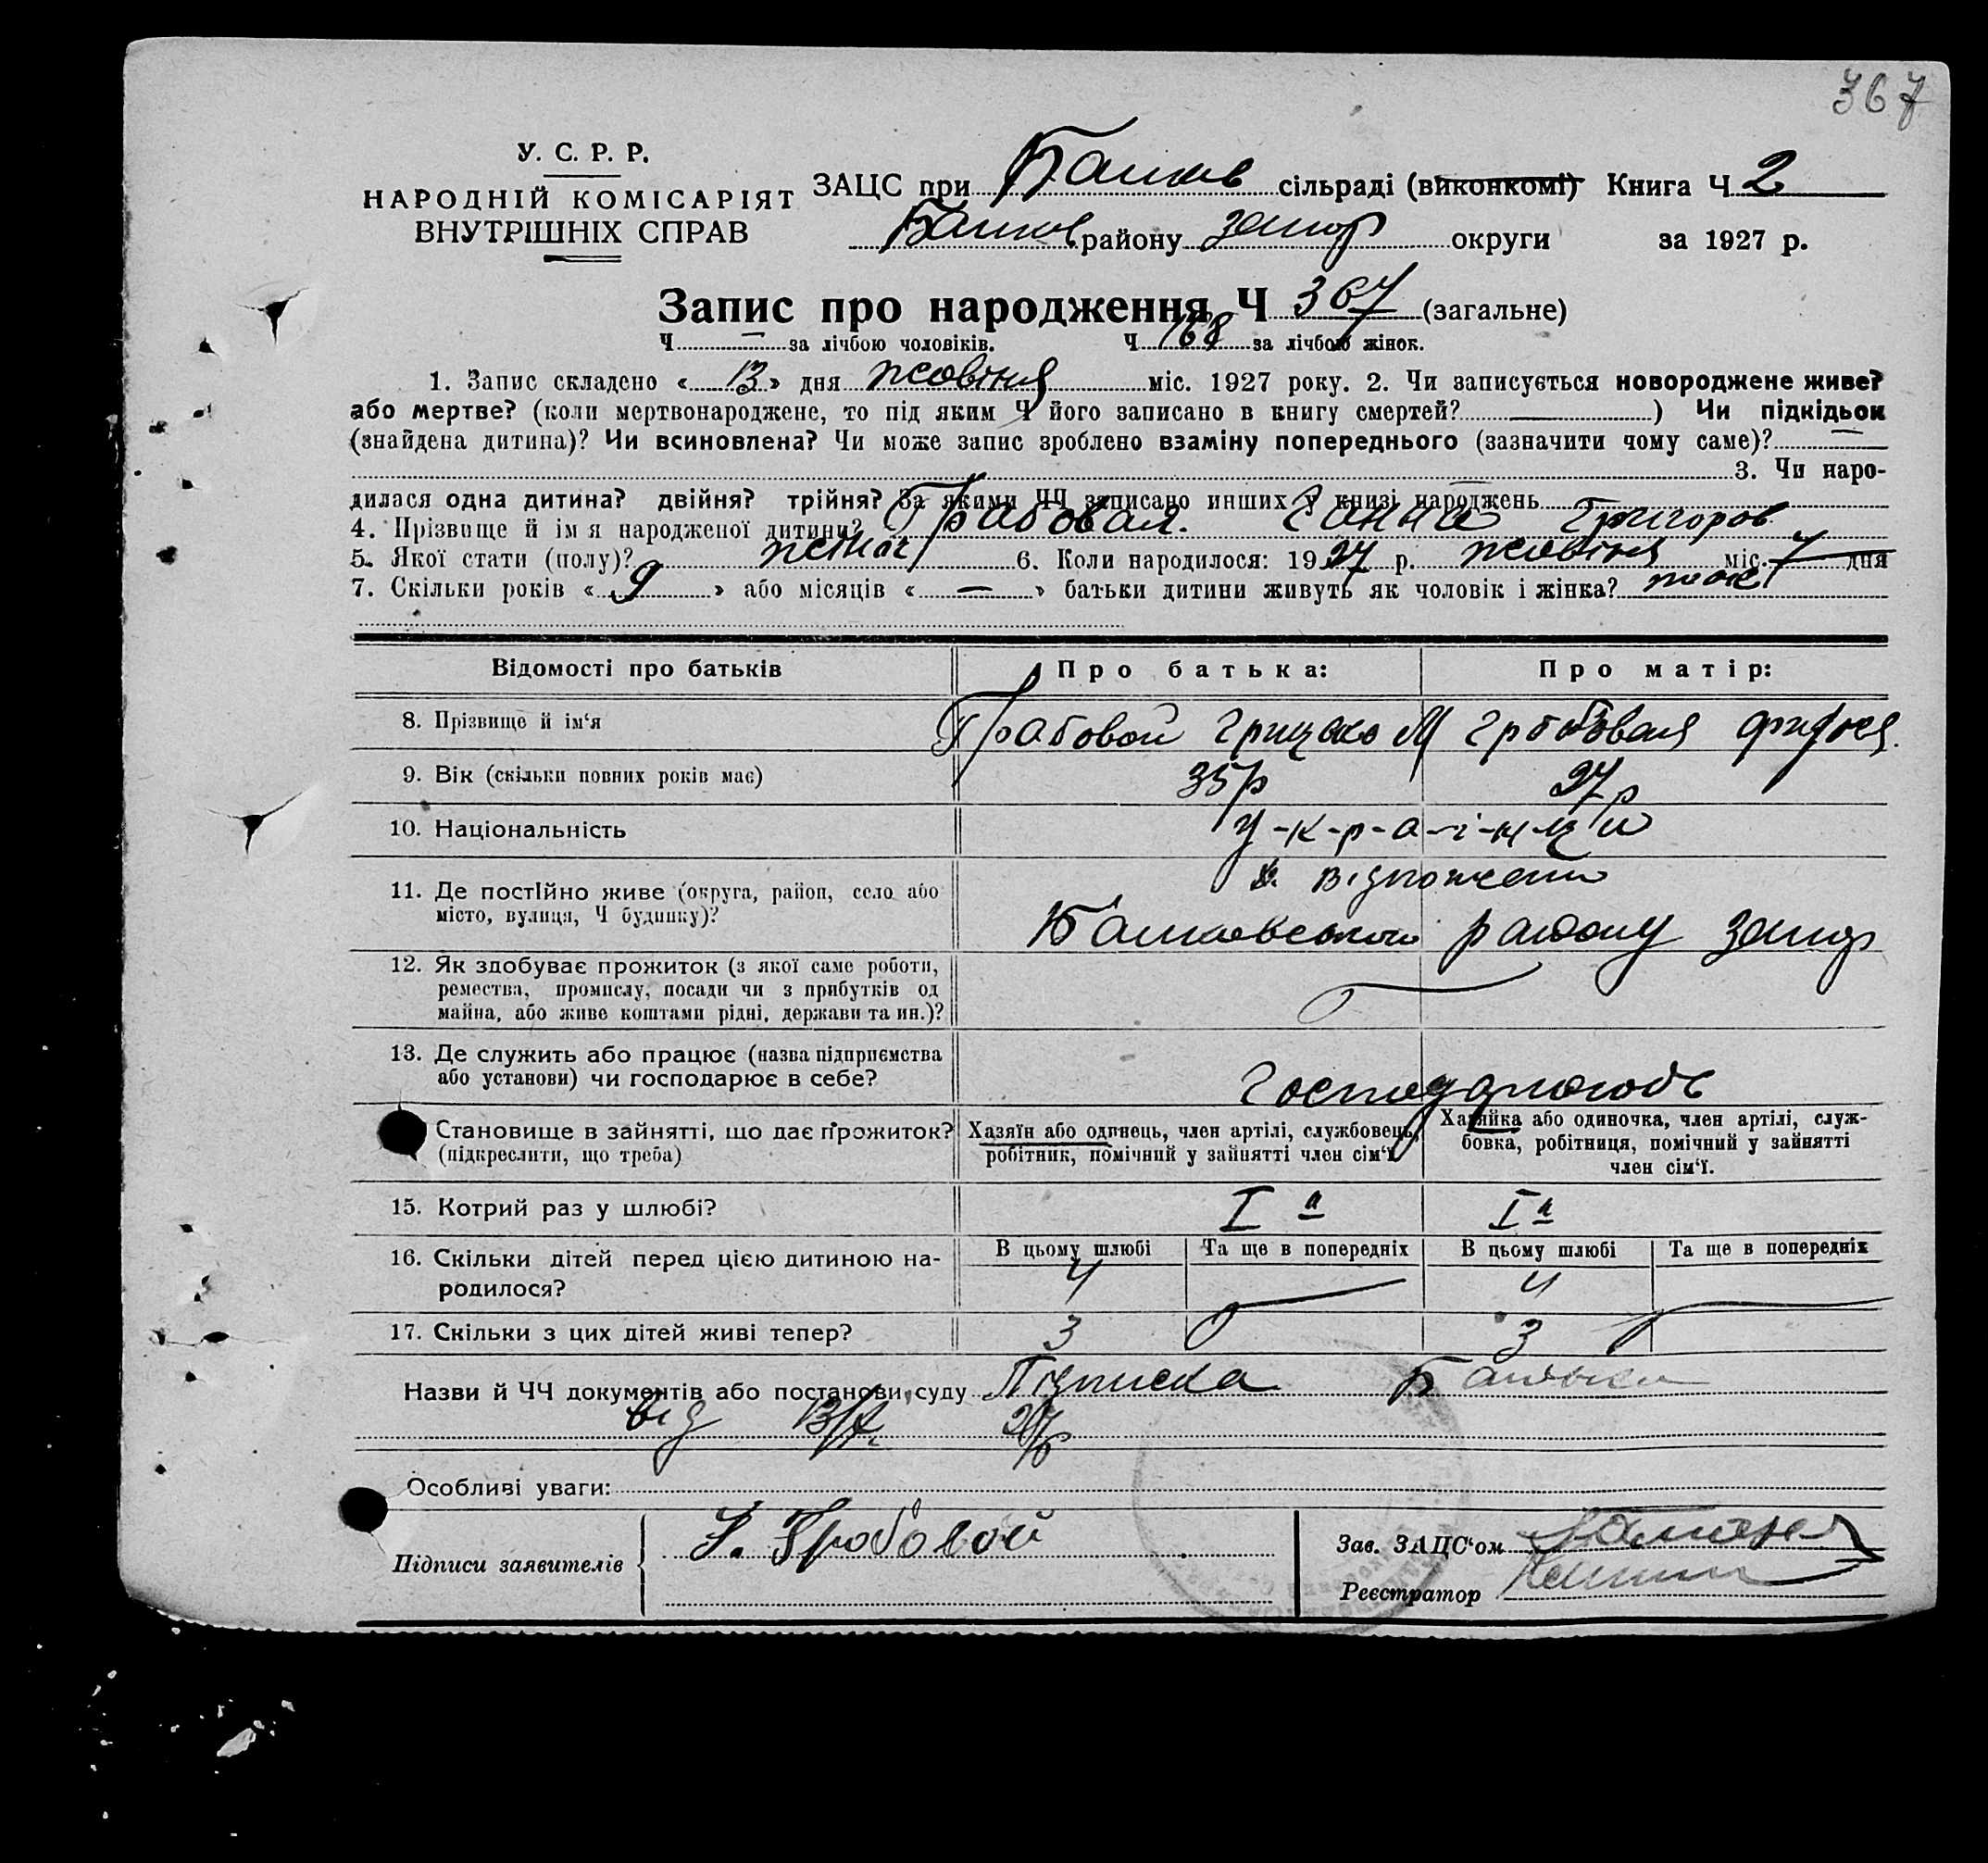 367
У. С. Р. Р.
НАРОДНІЙ КОМІСАРІЯТ
ВНУТРІШНІХ СПРАВ
ЗАЦС при сільраді (виконкомі) Книга Ч 2
району запор округи за 1927 р.
Запис про народження Ч 367 (загальне)
Ч — за лічбою чоловіків. Ч 168 за лічбою жінок.
1. Запис складено « 13 » дня жовтня міс. 1927 року. 2. Чи записується новороджене живе?
або мертве? (коли мертвонароджене, то під яким Ч його записано в книгу смертей? — ) Чи підкідьок
(знайдена дитина)? Чи всиновлена? Чи може запис зроблено взаміну попереднього (зазначити чому саме)? —
3. Чи наро-
дилася одна дитина? двійня? трійня? За якими ЧЧ записано инших у книзі народжень
4. Прізвище й ім я народженої дитини? Грабовая Ганна Григоров
5. Якої стати (полу)? жіноч 6. Коли народилося: 1927 р. жовтня міс. 7 дня
7. Скільки років « 9 » або місяців « — » батьки дитини живуть як чоловік і жінка? так
Відомості про батьків Про батька: Про матір:
8. Прізвище й ім‘я Грабовой Грицько М Грабовая
9. Вік (скільки повних років має) 35 р 27 р
10. Національність у-к-р-а-ї-н-ц и
11. Де постійно живе (округа, район, село або
місто, вулиця, Ч будинку)? району запор
12. Як здобуває прожиток (з якої саме роботи,
ремества, промислу, посади чи з прибутків од
майна, або живе коштами рідні, держави та ин.)?
13. Де служить або працює (назва підприємства
або установи) чи господарює в себе?
Становище в зайнятті, що дає прожиток? Хазяїн або одинець, член артілі, службовець, Хазяйка або одиночка, член артілі, служ-
(підкреслити, що треба) робітник, помічний у зайнятті член сім‘ї. бовка, робітниця, помічний у зайнятті
член сім‘ї.
15. Котрий раз у шлюбі? I й I й
16. Скільки дітей перед цією дитиною на-
родилося? В цьому шлюбі Та ще в попередніх В цьому шлюбі Та ще в попередніх
4 4
17. Скільки з цих дітей живі тепер? 3 3
Назви й ЧЧ документів або постанови суду Підписка Батька
від 13/X
Особливі уваги:
Підписи заявителів Грабовой
Зав. ЗАЦС‘ом
Реєстратор